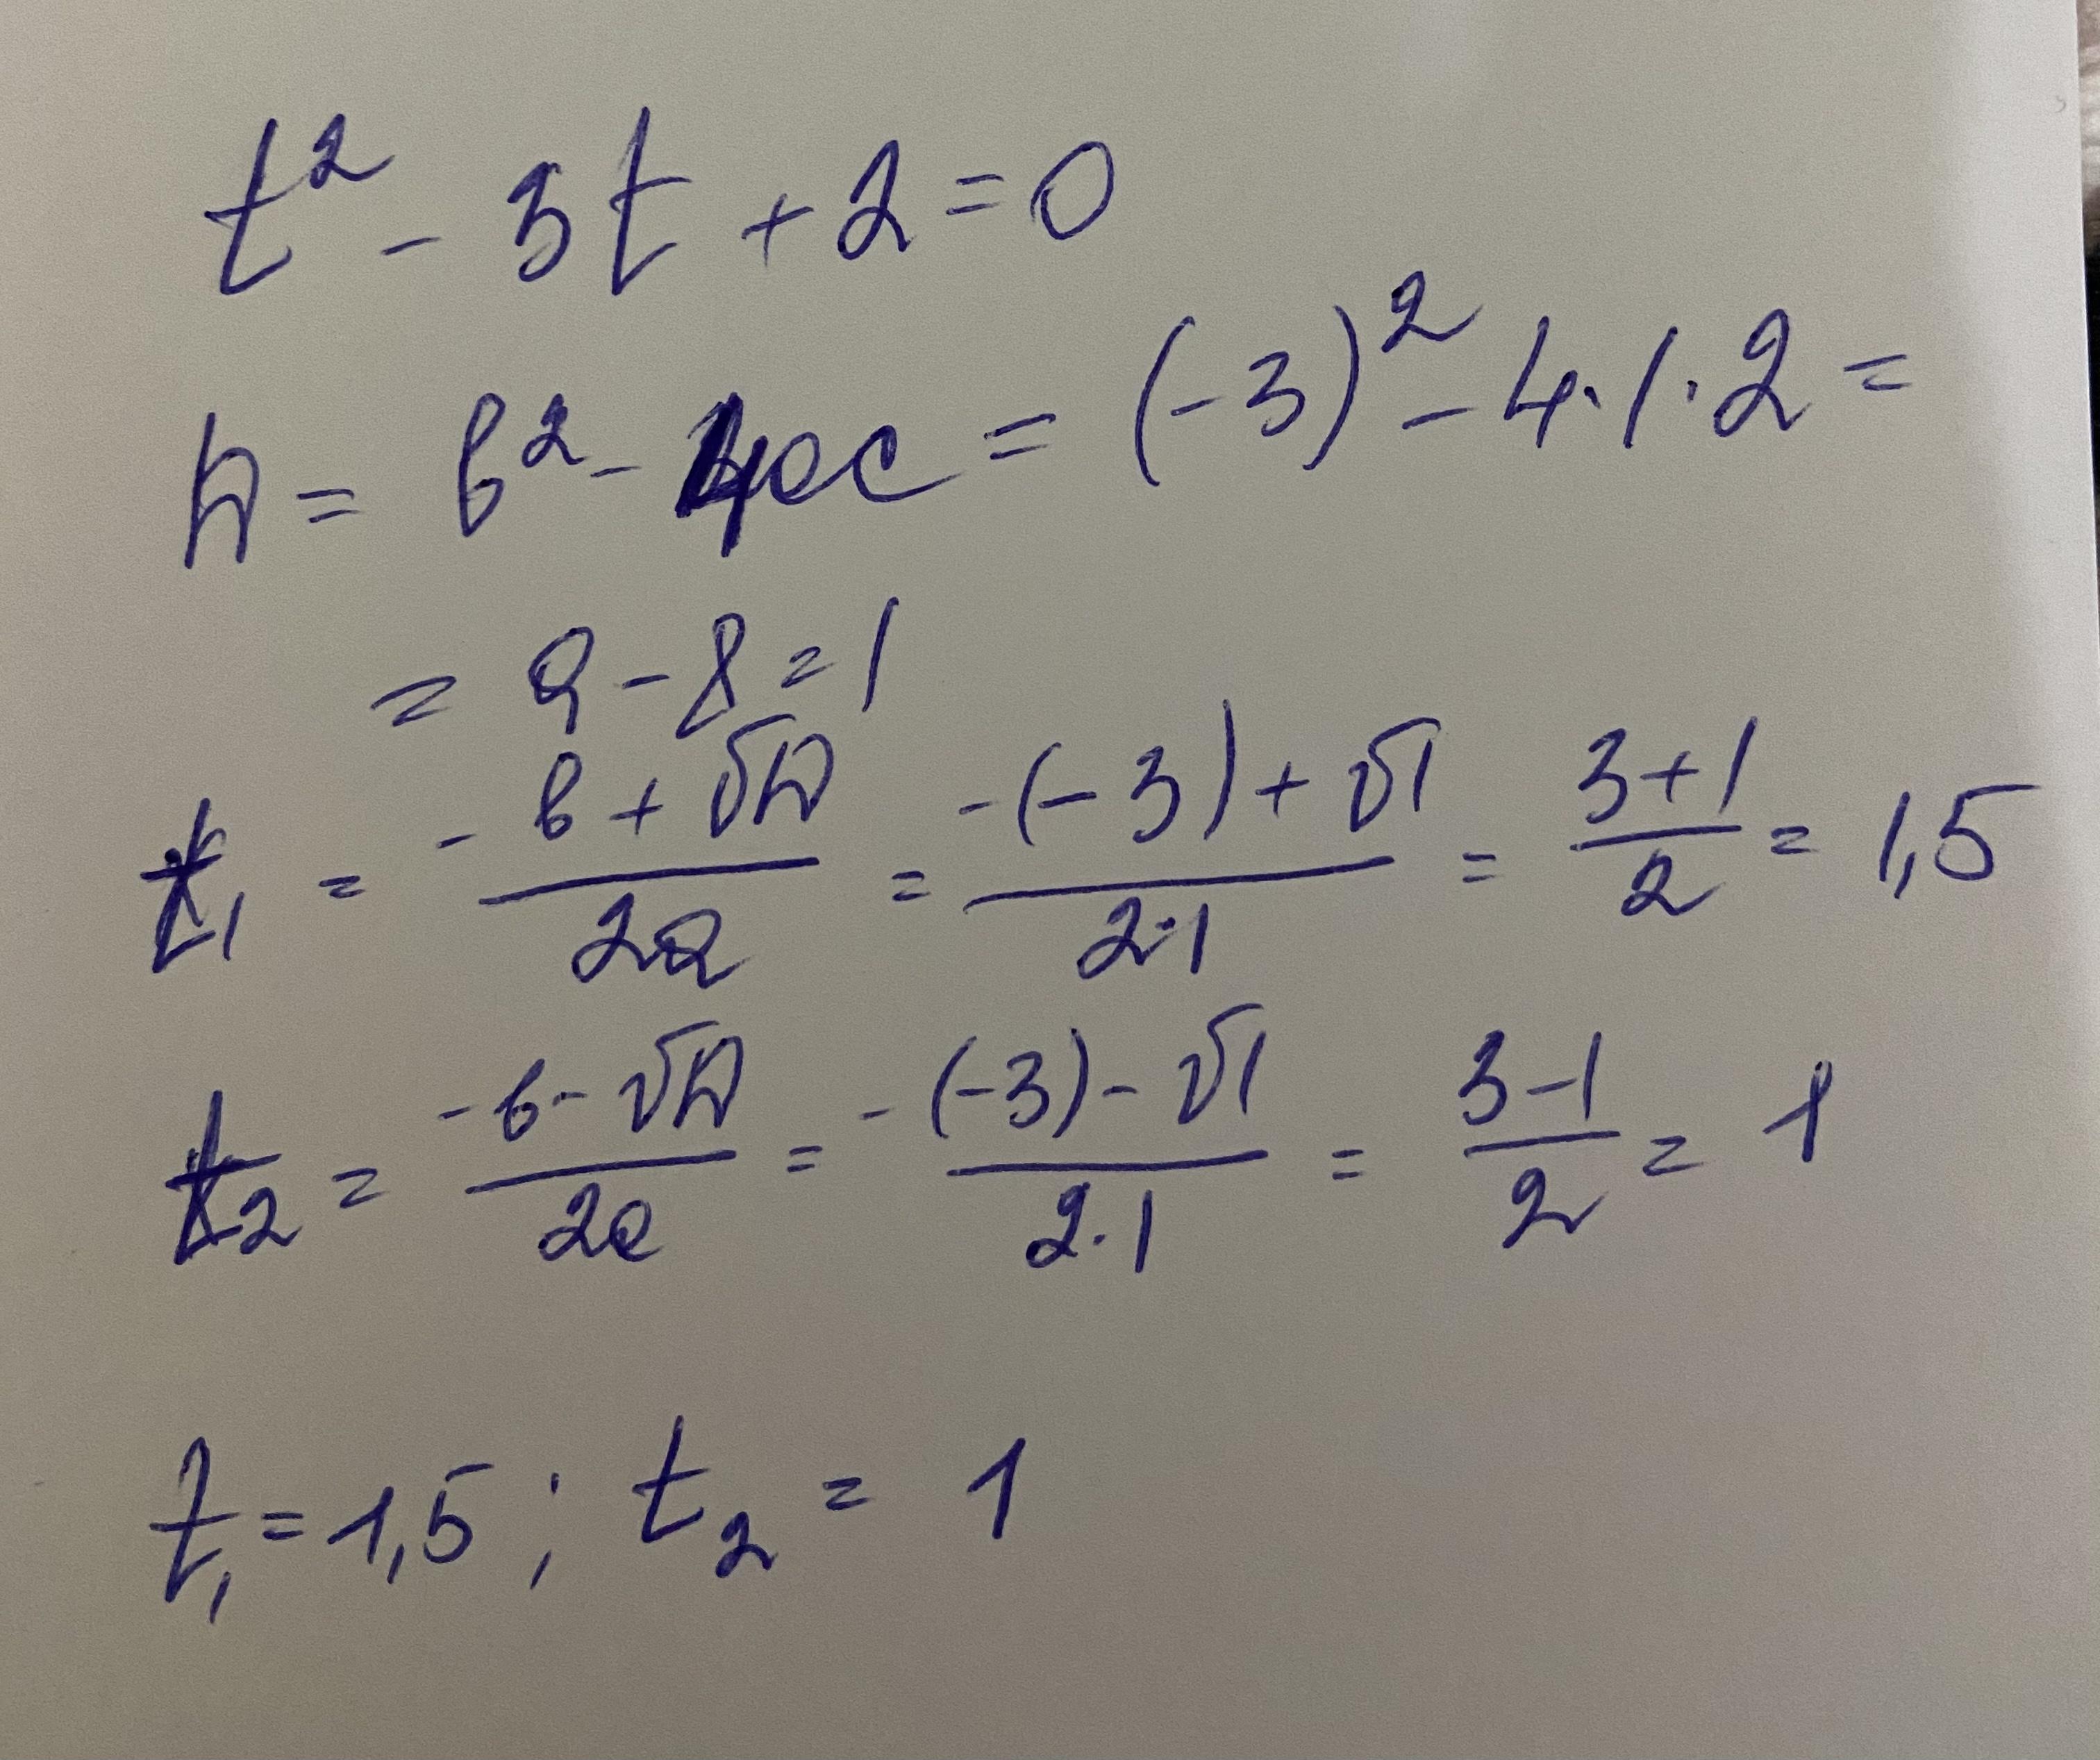 t² - 3t + 2 = 0
D = b² - 4ac = (-3)² - 4·1·2 =
= 9 - 8 = 1
t₁ = (-b + √D)/(2a) = (-(-3) + √1)/(2·1) = (3+1)/2 = 1,5
t₂ = (-b - √D)/(2a) = (-(-3) - √1)/(2·1) = (3-1)/2 = 1
t₁ = 1,5 ; t₂ = 1